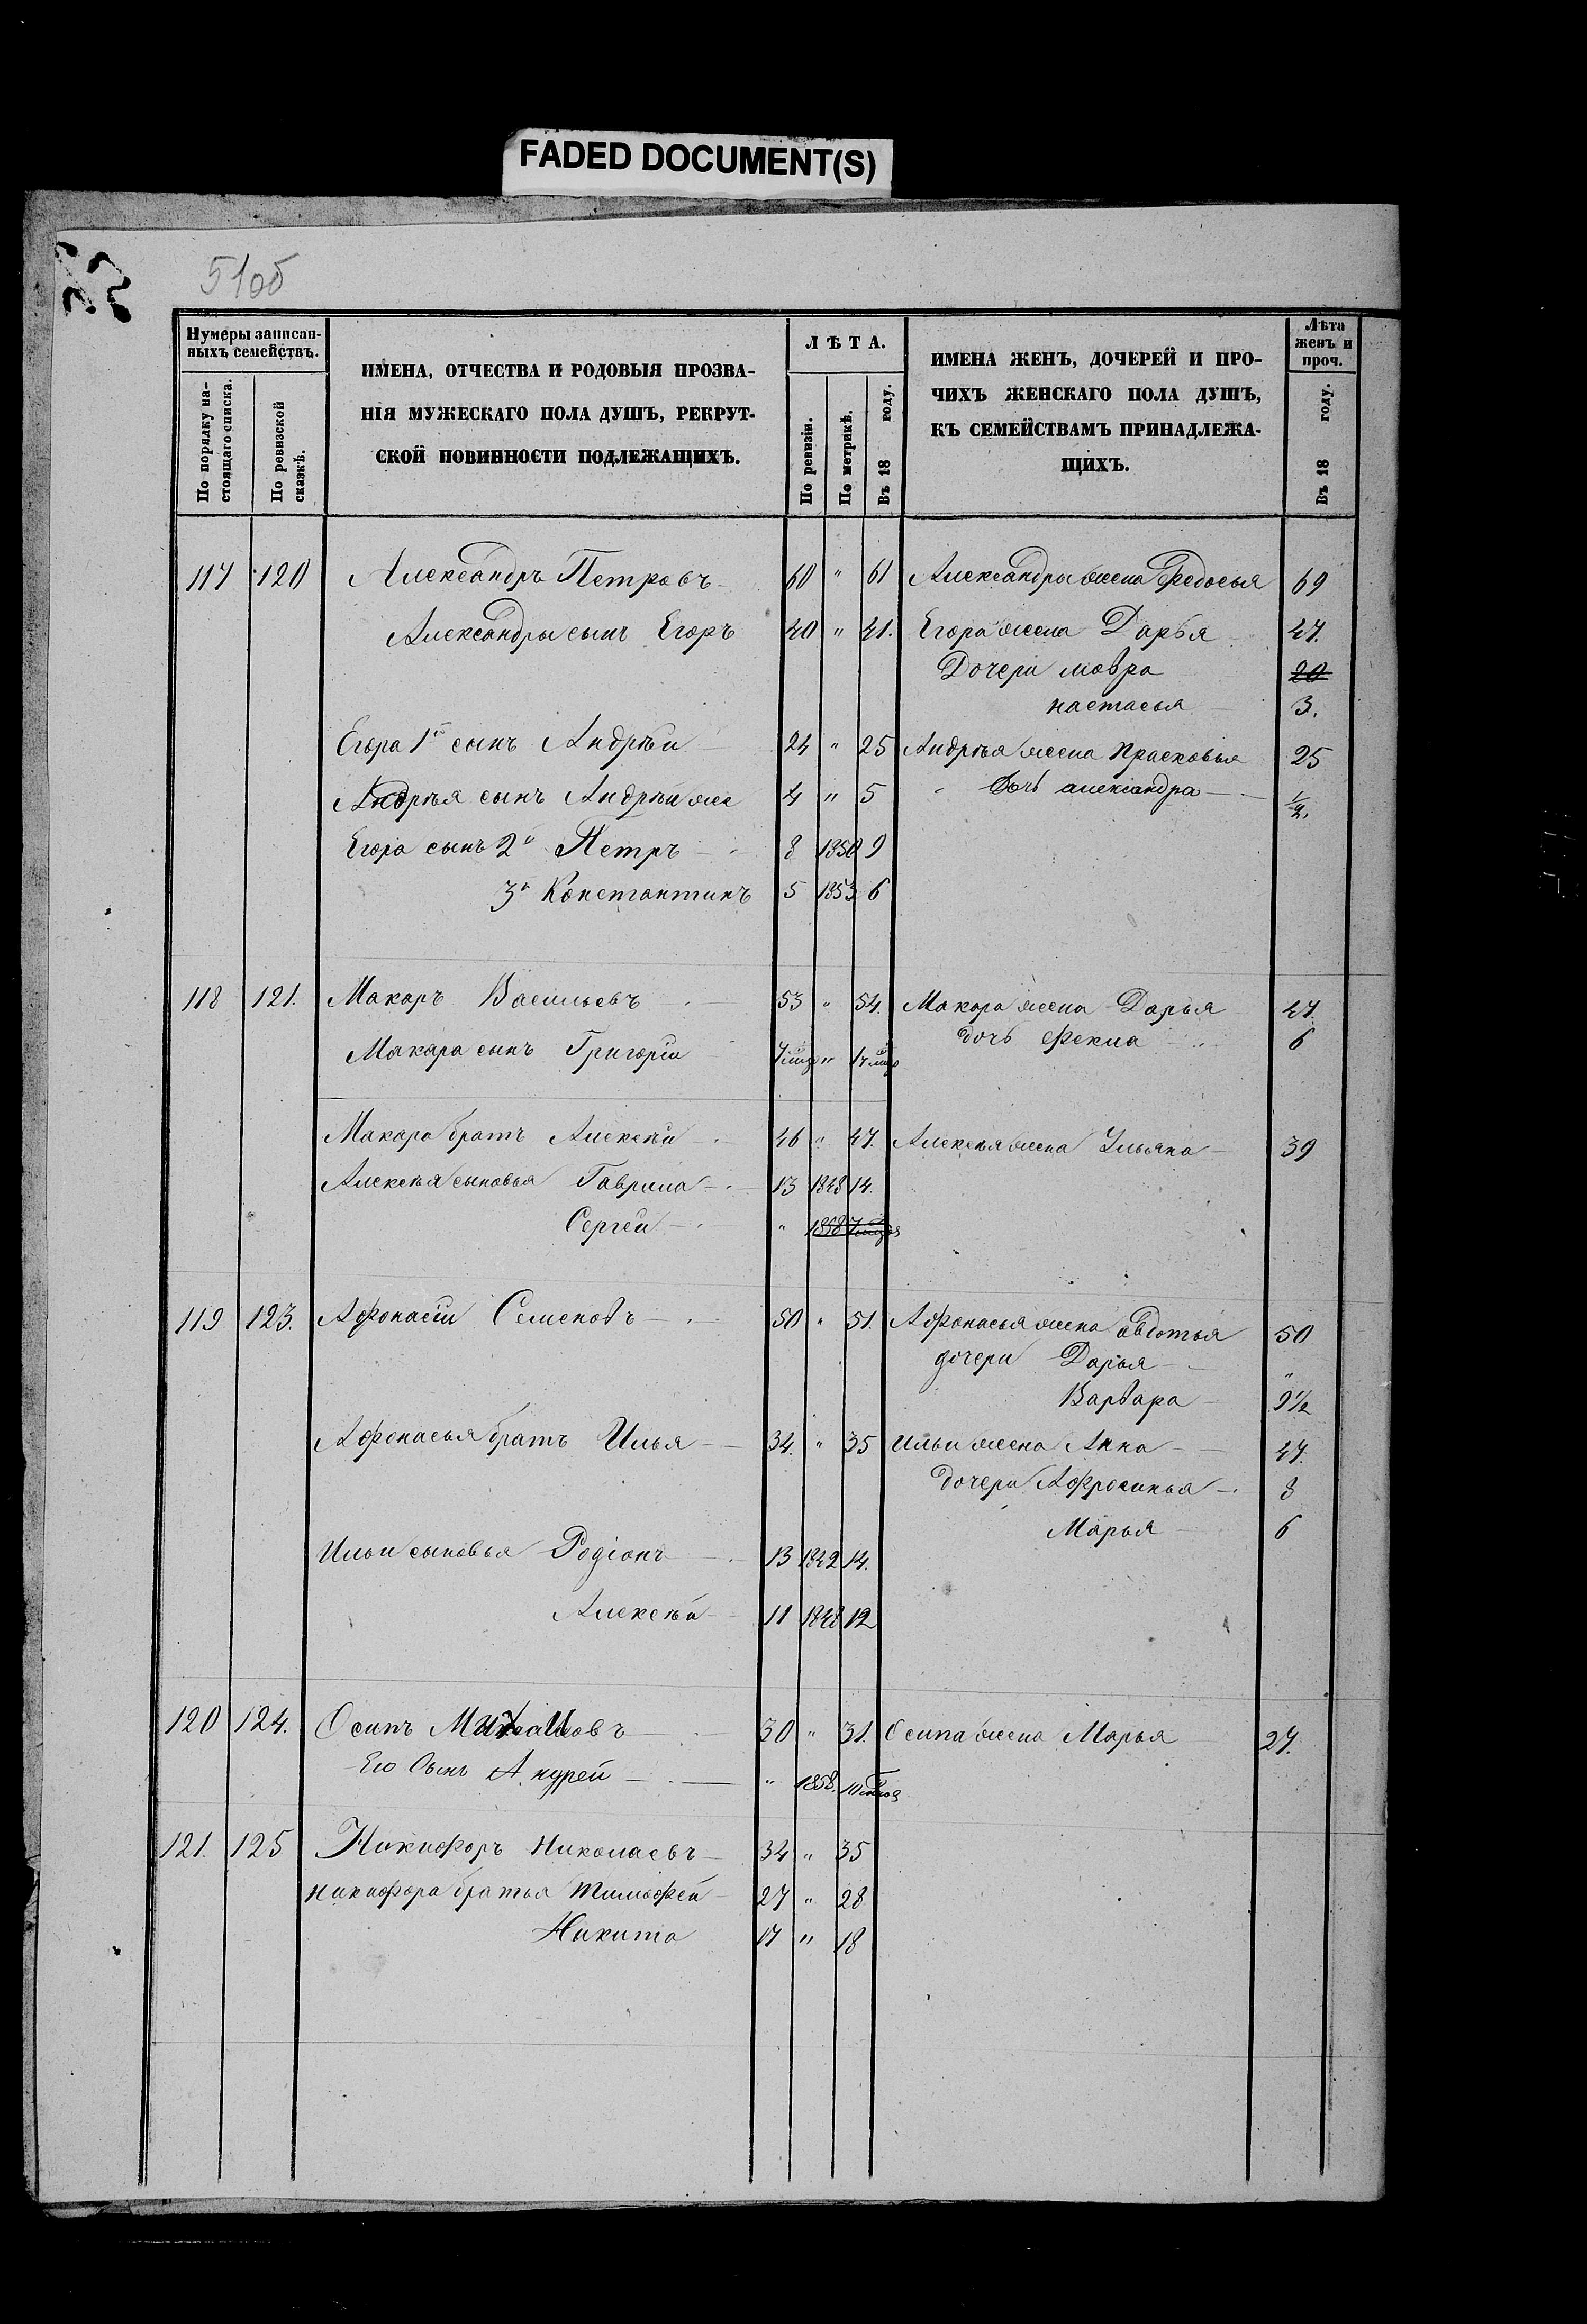 FADED DOCUMENT(S)
51об
Нумеры записан-
ныхъ семействъ.
По порядку на-
стоящаго списка.
По ревизской
сказкѣ.
ИМЕНА, ОТЧЕСТВА И РОДОВЫЯ ПРОЗВА-
НІЯ МУЖЕСКАГО ПОЛА ДУШЪ, РЕКРУТ-
СКОЙ ПОВИННОСТИ ПОДЛЕЖАЩИХЪ.
ЛѢТА.
По ревизіи.
По метрикѣ.
Въ 18 году.
ИМЕНА ЖЕНЪ, ДОЧЕРЕЙ И ПРО-
ЧИХЪ ЖЕНСКАГО ПОЛА ДУШЪ,
КЪ СЕМЕЙСТВАМЪ ПРИНАДЛЕЖА-
ЩИХЪ.
Лѣта
женъ и
проч.
Въ 18 году.
117 120 Александръ Петровъ 60 " 61 Александра жена Федосья 69
Александры сынъ Егоръ 40 " 41. Егора жена Дарья 47.
Дочери мавра 20
настасья 3.
Егора 1й сынъ Андрѣй 24 " 25 Андрѣя жена Прасковья 25
Андрѣя сынъ Андрѣй же 4 " 5 " дочь александра 1/2.
Егора сынъ 2й Петръ 8 1850 9
3й Константинъ 5 1853 6
118 121. Макаръ Васильевъ 53 " 54. Макара жена Дарья 47.
дочь Фекла 6
Макара сынъ Григорій "
Макара братъ Алексѣй 46 " 47. Алексѣя жена Ульяна 39
Алексѣя сыновья Гаврила 13 1848 14.
Сергей " 1858
119 123. Афонасій Семеновъ 50 " 51. Афонасья жена авдотья 50
дочери Дарья "
Варвара 9 1/2
Афонасья братъ Илья 34. " 35 Ильи жена Анна 47.
дочери Афросинья 8
Марья 6
Ильи сыновья Родіонъ 13 1842 14.
Алексѣй 11 1848 12
120 124. Осипъ Михайловъ 30 " 31. Осипа жена Марья 27.
Его Сынъ Андрей " 1858.
121. 125 Никифоръ Николаевъ 34 " 35
никифора братья Тимофей 27 " 28
Никита 17 " 18